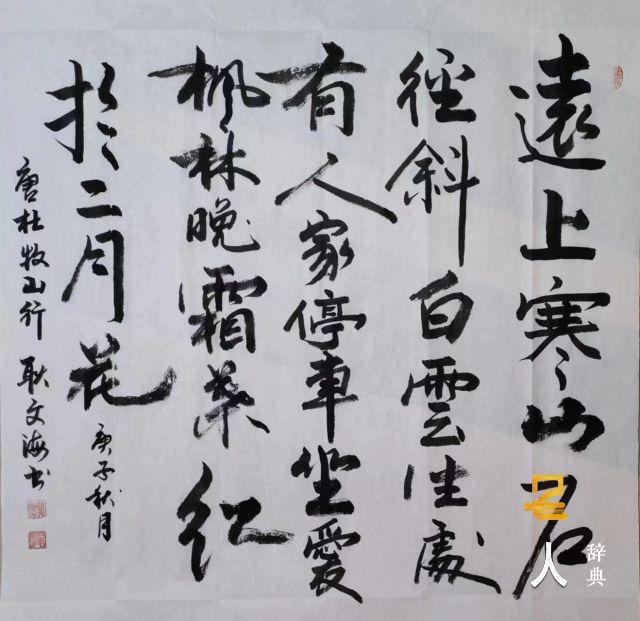 遠上寒山石
徑斜白雲生處
有人家停車坐愛
楓林晚霜葉紅
於二月花 庚子秋月
唐杜牧山行 耿文海书
名人辞典